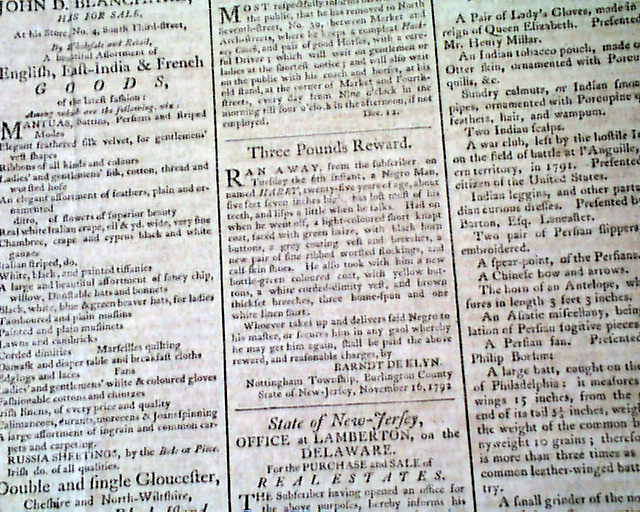 JOHN D. BLANCHARD,
HIS FOR SALE,
At his Store, No. 4, South Third-street,
By Wholesale and Retail,
A beautiful Assortment of
English, East-India & French
GOODS,
of the latest fashion:
Among which are the following, viz.
MANTUAS, Sattins, Persians and striped
Modes
Elegant feathered silk velvet, for gentlemens'
vest shapes
Ribbons of all kinds and colours
Ladies' and gentlemens' silk, cotton, thread and
worsted hose
An elegant assortment of feathers, plain and ornamented
ditto, of flowers of superior beauty
Real white Italian crape, ell & yd. wide, very fine
Chambree, crape and cyprus black and white
gauzes
Italian striped, do.
White, black, and painted tiffanies
A large and beautiful assortment of fancy chip,
willow, Dunstable hats and bonnets
Black, white, blue & green beaver hats, for ladies
Tamboured and plain muslins
Painted and plain muslinets
Lawns and cambricks
Corded dimities Marseilles quilting
Damask and diaper table and breakfast cloths
Edgings and laces Fans
Ladies' and gentlemens' white & coloured gloves
Fashionable cottons and chintzes
Irish linens, of every price and quality
Calimancoes, durants, moreens & Joans spinning
A large assortment of ingrain and common carpets
and carpeting.
RUSSIA SHEETINGS, by the Bale or Piece.
Irish do. of all qualities.
Double and single Gloucester,
Cheshire and North-Wiltshire,
MOST respectfully informs
the public, that he has removed to North
Seventh-street, No. 39, between Market and
Arch-streets, where he keeps a compleat
Coach, and pair of good Horses, with a careful
Driver; which will wait on gentlemen or
ladies at the shortest notice; and will also wait
on the public with his coach and horses, at his
old stand, at the corner of Market and Fourth-
streets, every day from Nine o'clock in the
morning till four o'clock in the afternoon, if not
employed. Dec. 12.
Three Pounds Reward.
RAN AWAY, from the subscriber on
Tuesday the 6th instant, a Negro Man,
named HARRY, twenty-five years of age, about
five feet seven inches high, has lost most of his
teeth, and lisps a little when he talks. Had on
when he went off, a light-coloured short knapt
coat, faced with green baize, with black horn
buttons, a grey coating vest and breeches, a
new pair of fine ribbed worsted stockings, and
calf-skin shoes. He also took with him a new
bottle-green coloured coat, with yellow buttons,
a white corded-dimity vest, and brown
thickset breeches, three home-spun and one
white linen shirt.
Whoever takes up and delivers said Negro to
his master, or secures him in any gaol whereby
he may get him again, shall be paid the above
reward, and reasonable charges, by
BARNDT DE KLYN.
Nottingham Township, Burlington County
State of New-Jersey, November 16, 1792
State of New-Jersey,
OFFICE at LAMBERTON, on the
DELAWARE.
For the PURCHASE and SALE of
REAL ESTATES.
THE Subscriber having opened an office for
the above purposes, hereby informs his
A Pair of Lady's Gloves, made in
reign of Queen Elizabeth. Presented
Mr. Henry Miller.
An Indian tobacco pouch, made
Otter skin, ornamented with Porcu
quills, &c.
Sundry calmuts, or Indian smok
pipes, ornamented with Porcupine
feathers, hair, and wampum.
Two Indian scalps.
A war club, left by the hostile
on the field of battle at l'Anguille,
ern territory, in 1791. Presented
citizen of the United States.
Indian leggins, and other parts
dian curious dresses. Presented by
Barton, Esq. Lancaster.
Two pair of Persian slippers
embroidered.
A spear-point, of the Persians
A Chinese bow and arrows.
The horn of an Antelope,
sures in length 3 feet 3 inches.
An Asiatic miscellany, being
lation of Persian fugitive pieces
A Persian fan. Presented
Philip Bochm:
A large batt, caught on the
of Philadelphia: it measures
wings 15 inches, from the
end of its tail 5½ inches, weigh
the weight of the common
nyweight 10 grains; therefore
is more than three times as
common leather-winged batt
try.
A small grinder of the no